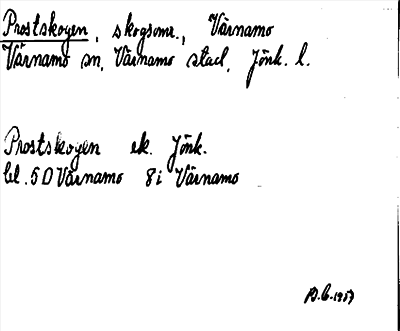 Prostskogen, skogsomr., Värnamo
Värnamo sn, Värnamo stad, Jönk. l.
Prostskogen ek. Jönk.
bl. 5D Värnamo 8i Värnamo
1957